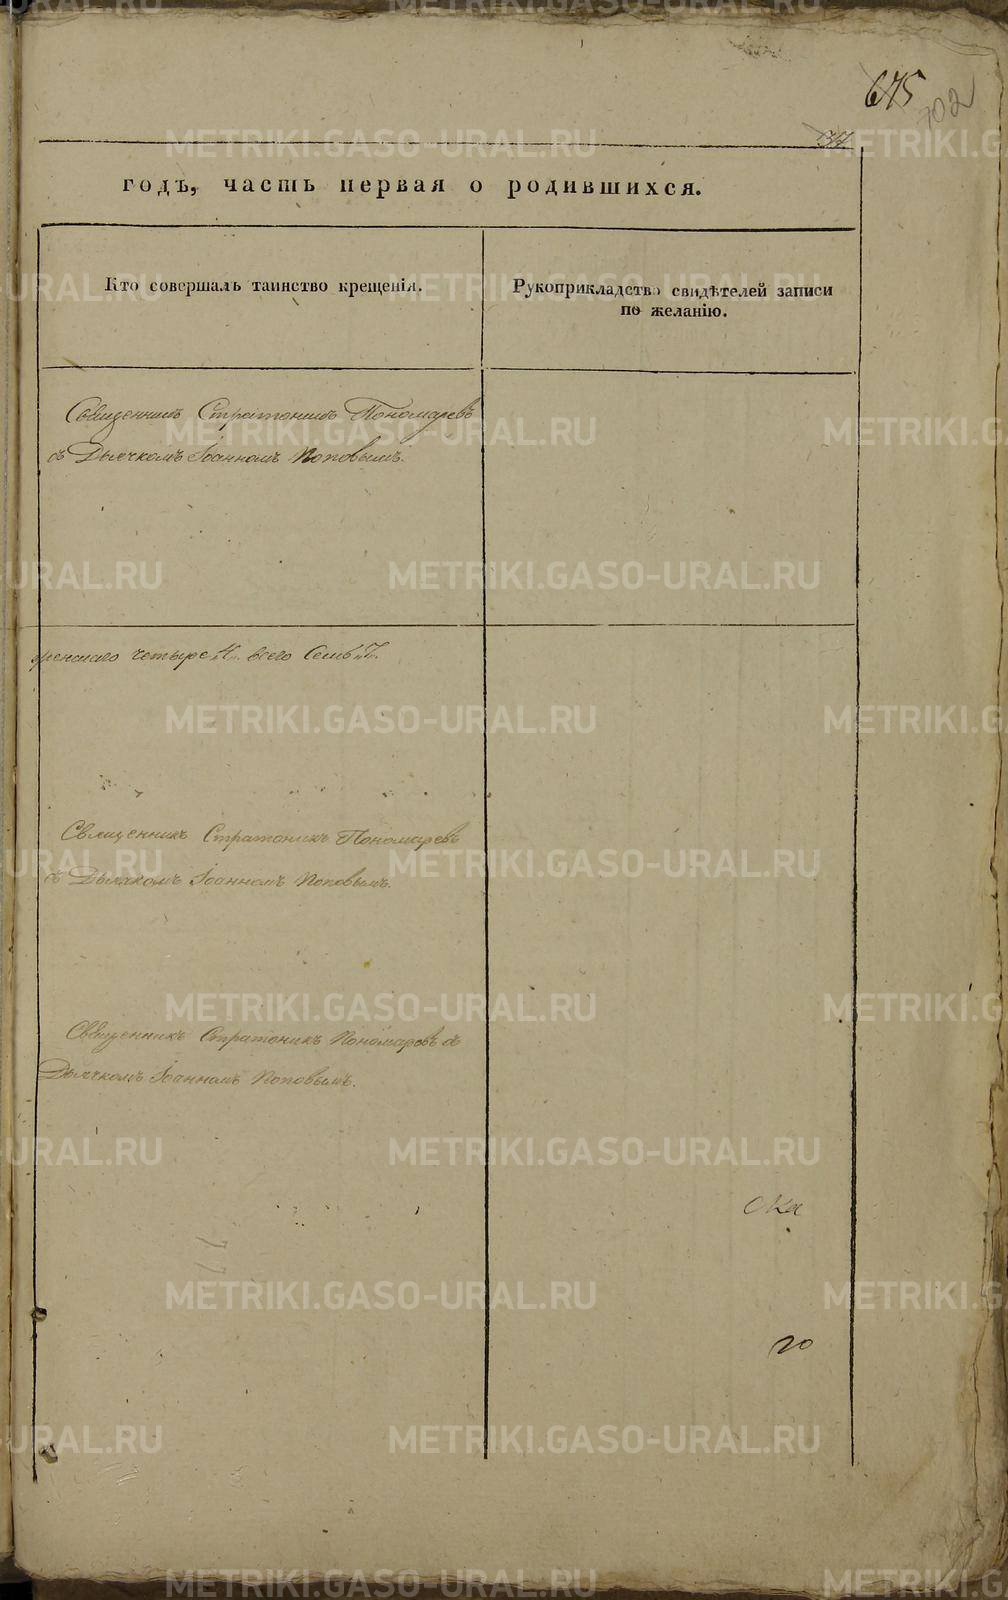 675
702
34
годъ, часть первая о родившихся.
Кто совершалъ таинство крещенія.
Рукоприкладство свидѣтелей записи
по желанію.
Священникъ Стратоникъ Пономаревъ
съ Дьячкомъ Іоанномъ Поповымъ.
женскаго четыре „4„ всего Семь „7„.
Священникъ Стратоникъ Пономаревъ
съ Дьячкомъ Іоанномъ Поповымъ.
Священникъ Стратоникъ Пономаревъ съ
Дьячкомъ Іоанномъ Поповымъ.
ска
го
METRIKI.GASO-URAL.RU